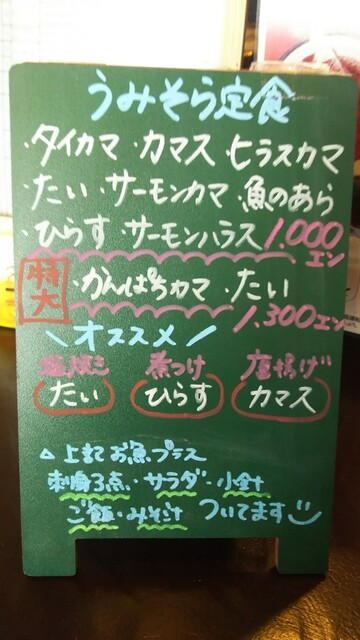 うみそら定食
・タイカマ ・カマス ヒラスカマ
・たい ・サーモンカマ 魚のあら
・ひらす ・サーモンハラス 1,000エン
特大 ・かんぱちカマ ・たい
1,300エン
\オススメ/
塩焼き 煮つけ 唐揚げ
たい ひらす カマス
△上記お魚プラス
刺身3点・サラダ・小鉢
ご飯・みそ汁 ついてます